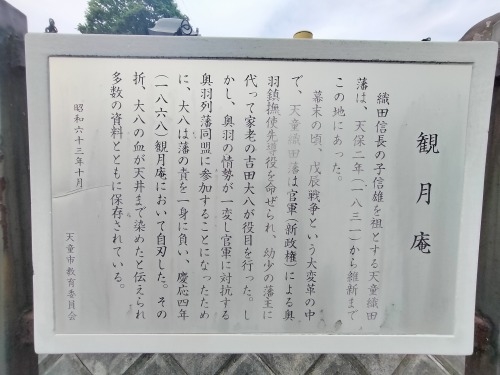 観月庵
織田信長の子信雄を祖とする天童織田
藩は、天保二年(一八三一)から維新まで
この地にあった。
幕末の頃、戊辰戦争という大変革の中
で、天童織田藩は官軍(新政権)による奥
羽鎮撫使先導役を命ぜられ、幼少の藩主に
代って家老の吉田大八が役目を行った。し
かし、奥羽の情勢が一変し官軍に対抗する
奥羽列藩同盟に参加することになったため
に、大八は藩の責を一身に負い、慶応四年
(一八六八)観月庵において自刃した。その
折、大八の血が天井まで染めたと伝えられ
多数の資料とともに保存されている。
昭和六十三年十月
天童市教育委員会